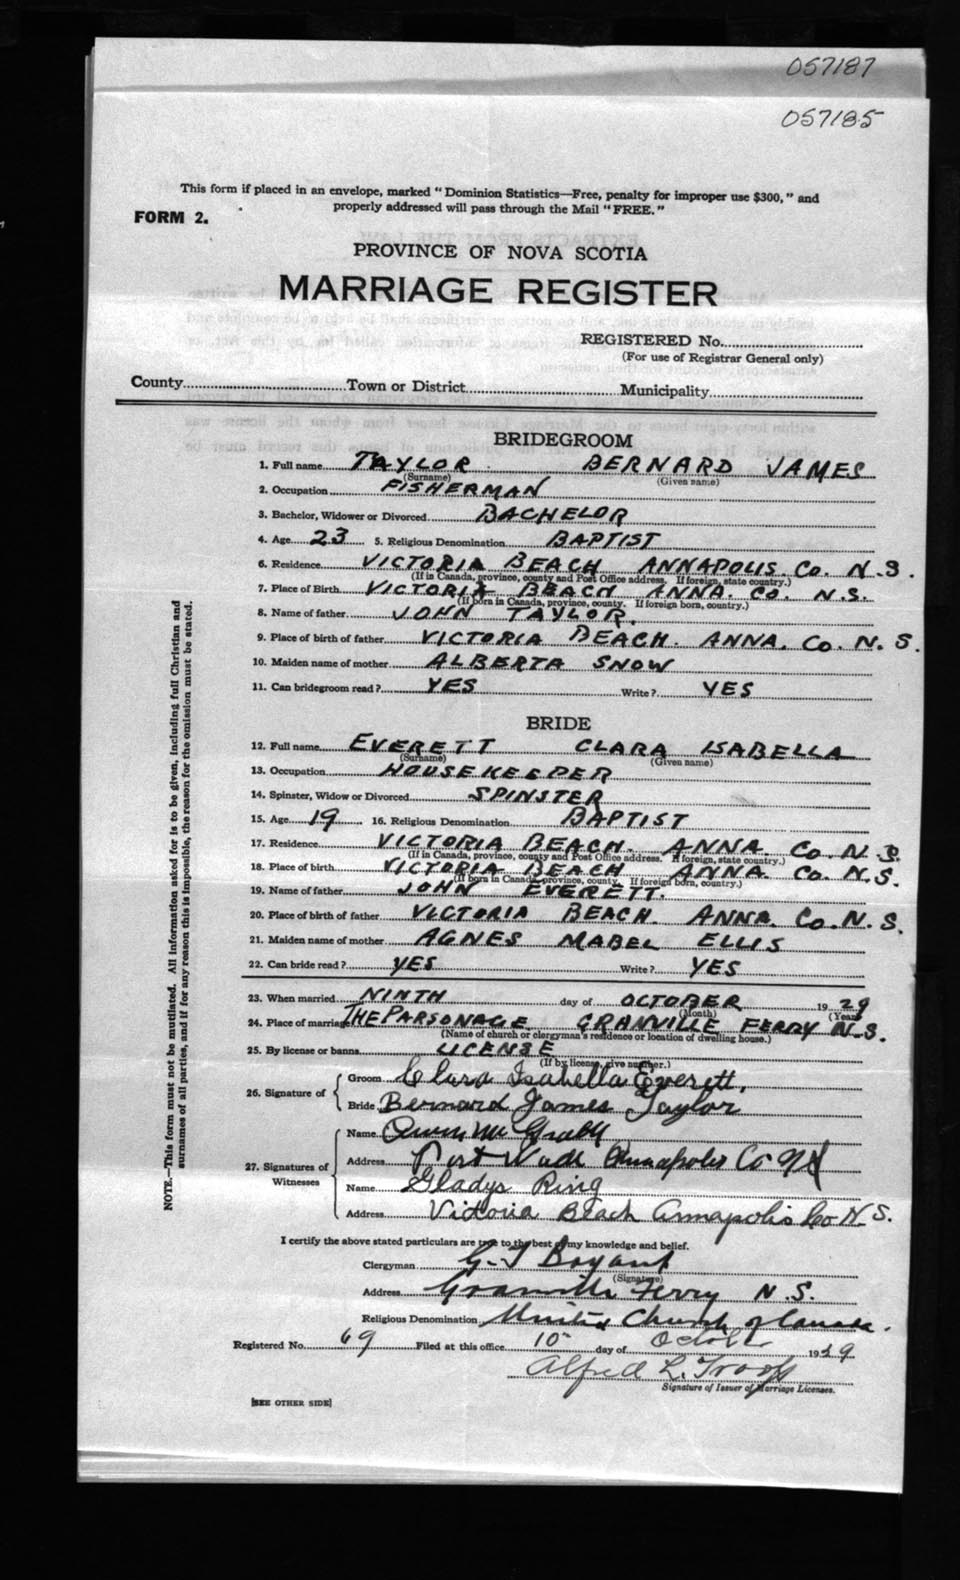 057187
057185
This form if placed in an envelope, marked "Dominion Statistics—Free, penalty for improper use $300," and
properly addressed will pass through the Mail "FREE."
FORM 2.
PROVINCE OF NOVA SCOTIA
MARRIAGE REGISTER
REGISTERED No.
(For use of Registrar General only)
County Town or District Municipality
BRIDEGROOM
1. Full name TAYLOR BERNARD JAMES
(Surname) (Given name)
2. Occupation FISHERMAN
3. Bachelor, Widower or Divorced BACHELOR
4. Age 23 5. Religious Denomination BAPTIST
6. Residence VICTORIA BEACH ANNAPOLIS. CO. N.S.
(If in Canada, province, county and Post Office address. If foreign, state country.)
7. Place of Birth VICTORIA BEACH ANNA. CO. N.S.
(If born in Canada, province, county. If foreign born, country.)
8. Name of father JOHN TAYLOR.
9. Place of birth of father VICTORIA BEACH. ANNA. CO. N.S.
10. Maiden name of mother ALBERTA SNOW
11. Can bridegroom read? YES Write? YES
BRIDE
12. Full name EVERETT CLARA ISABELLA
(Surname) (Given name)
13. Occupation HOUSEKEEPER
14. Spinster, Widow or Divorced SPINSTER
15. Age 19 16. Religious Denomination BAPTIST
17. Residence VICTORIA BEACH. ANNA. CO. N.S.
(If in Canada, province, county and Post Office address. If foreign, state country.)
18. Place of birth VICTORIA BEACH ANNA. CO. N.S.
(If born in Canada, province, county. If foreign born, country.)
19. Name of father JOHN EVERETT.
20. Place of birth of father VICTORIA BEACH. ANNA. CO. N.S.
21. Maiden name of mother AGNES MABEL ELLIS
22. Can bride read? YES Write? YES
23. When married NINTH day of OCTOBER 1929
(Month) (Year)
24. Place of marriage THE PARSONAGE GRANVILLE FERRY N.S.
(Name of church or clergyman's residence or location of dwelling house.)
25. By license or banns LICENSE
(If by license, give number.)
26. Signature of Groom Clara Isabella Everett.
Bride Bernard James Taylor
27. Signatures of Witnesses Name Owen McGrath
Address Port Wade Annapolis Co NS
Name Gladys Ring
Address Victoria Beach Annapolis Co N.S.
I certify the above stated particulars are true to the best of my knowledge and belief.
Clergyman G. T Bryant
(Signature)
Address Granville Ferry N.S.
Religious Denomination United Church of Canada.
Registered No. 69 Filed at this office 10 day of Octob 1929
Alfred L. Troop
Signature of Issuer of Marriage Licenses.
[SEE OTHER SIDE]
NOTE.—This form must not be mutilated. All information asked for is to be given, including full Christian and
surnames of all parties, and if for any reason this is impossible, the reason for the omission must be stated.